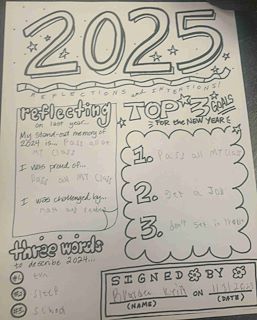 2025
REFLECTIONS and INTENTIONS!
reflecting
on last year...
My stand-out memory of
2024 is... Pass all of
MT Class
I was proud of...
Pass all MT Class
I was challenged by...
Math and
three words
to describe 2024...
#1
#2 sleep
#3 School
TOP 3 GOALS
FOR the NEW YEAR!
1. Pass all MT Class
2. Get a Job
3. Don't get in
SIGNED BY
on
(NAME) (DATE)